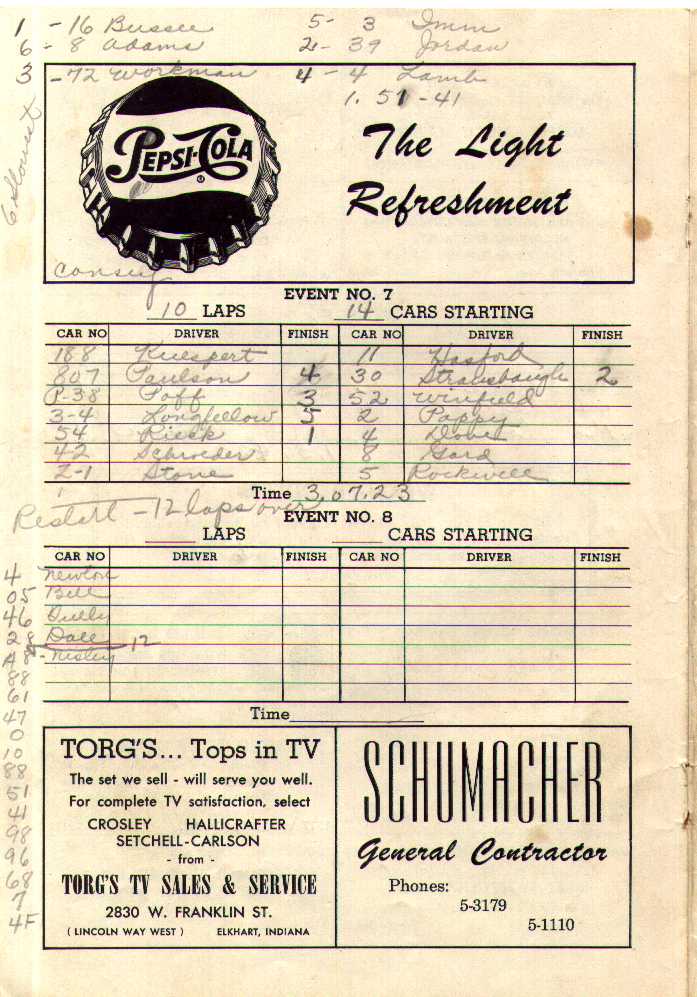 1 - 16 Bussee 5 - 3 Imm
6 - 8 Adams 2 - 39 Jordan
3 - 72 Workman 4 - 4 Lamb
1. 51 - 41
6 slowest
PEPSI-COLA
The Light
Refreshment
consey
EVENT NO. 7
10 LAPS 14 CARS STARTING
CAR NO DRIVER FINISH CAR NO DRIVER FINISH
188 Kuespert 11 Hosford
807 Paulson 4 30 Strawsbaugh 2
P-38 Poff 3 52 Winfield
3-4 Longfellow 5 2 Pappy
54 Rieck 1 4
42 Schroeder 8 Gard
Z-1 Stone 5 Rockwell
Time 3.07.23
Restart - 12 laps over
EVENT NO. 8
LAPS CARS STARTING
CAR NO DRIVER FINISH CAR NO DRIVER FINISH
4 Newton
05 Bell
46
28 Dale 12
A8 - Nisley
88
61
47
0
10
88
51
41
98
96
68
7
4F
Time
TORG'S... Tops in TV
The set we sell - will serve you well.
For complete TV satisfaction, select
CROSLEY HALLICRAFTER
SETCHELL-CARLSON
- from -
TORG'S TV SALES & SERVICE
2830 W. FRANKLIN ST.
( LINCOLN WAY WEST ) ELKHART, INDIANA
SCHUMACHER
General Contractor
Phones:
5-3179
5-1110